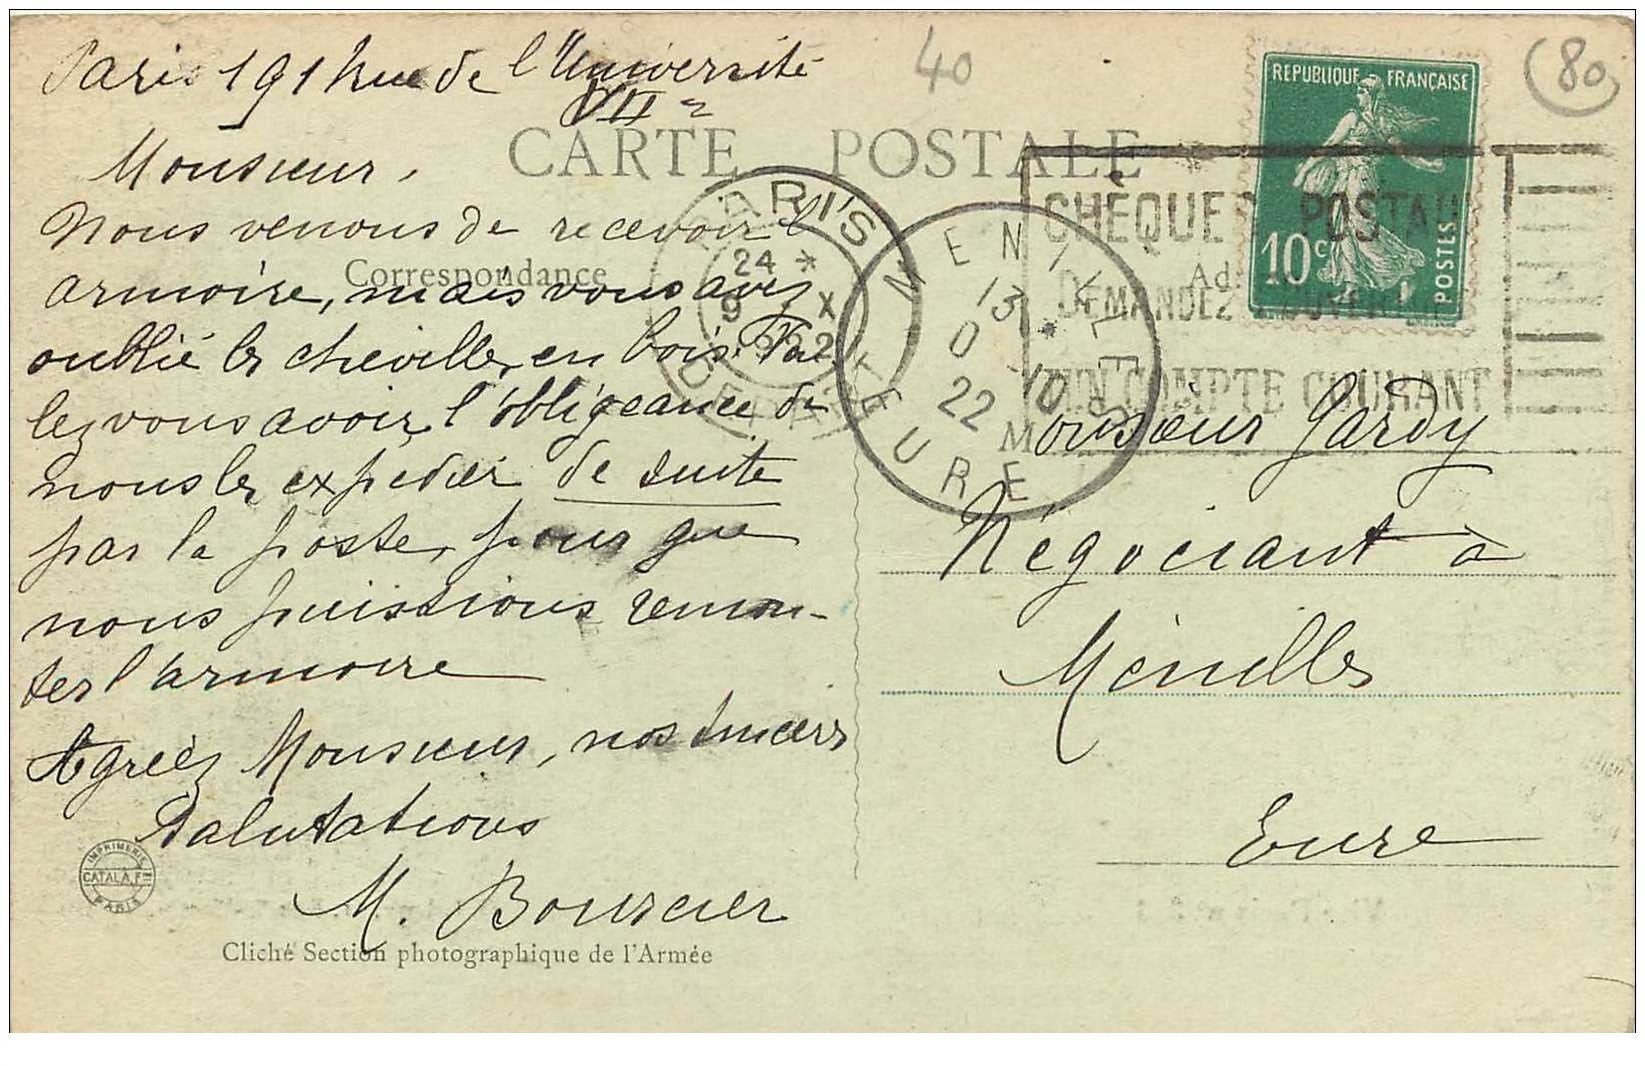 Paris 191 rue de l'Université
VIIe
Monsieur,
Nous venons de recevoir l'
armoire, mais vous avez
oublié les chevilles en bois.
lez vous avoir l'obligeance de
nous les expedier de suite
par la poste, pour que
nous puissions remon-
ter l'armoire
Agréez Monsieur, nos sincères
salutations
M. Bourcier
CARTE POSTALE
Correspondance
Cliché Section photographique de l'Armée
IMPRIMERIE
CATALA Fres
PARIS
40
80
REPUBLIQUE FRANÇAISE
10c
POSTES
PARIS
24 *
9 X
DÉPART
MENILLES
13 *
10
22
EURE
CHÈQUE POSTAU
DEMANDEZ L'OUVERT
UN COMPTE COURANT
Monsieur Gardy
Négociant à
Ménilles
Eure